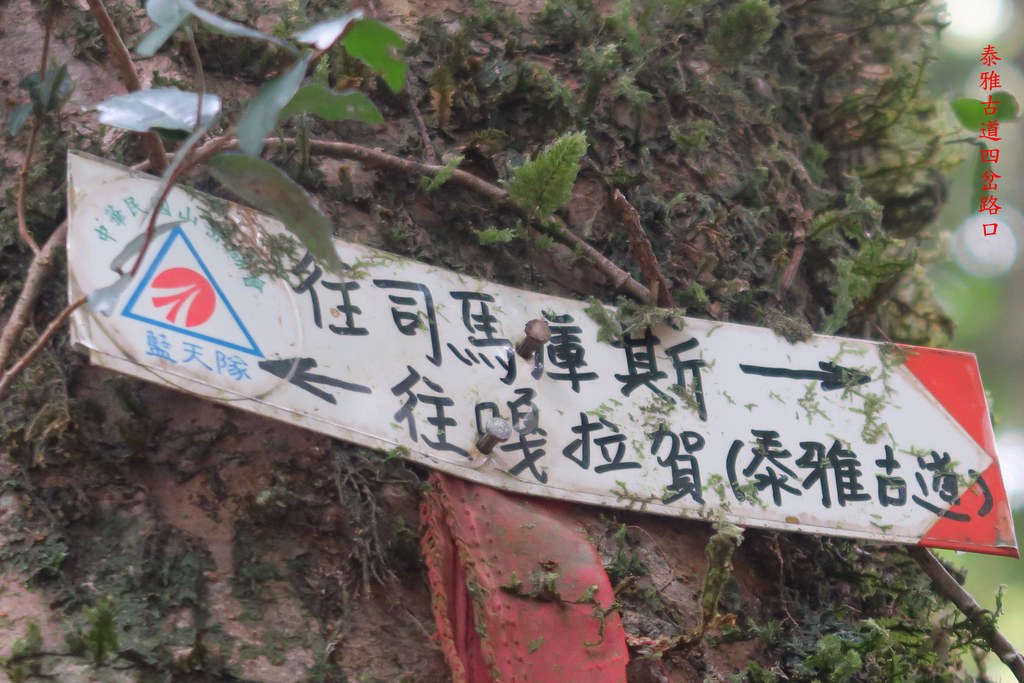 泰雅古道四岔路口
中華民國山
藍天隊
往司馬庫斯 →
← 往嘎拉賀(泰雅古道)